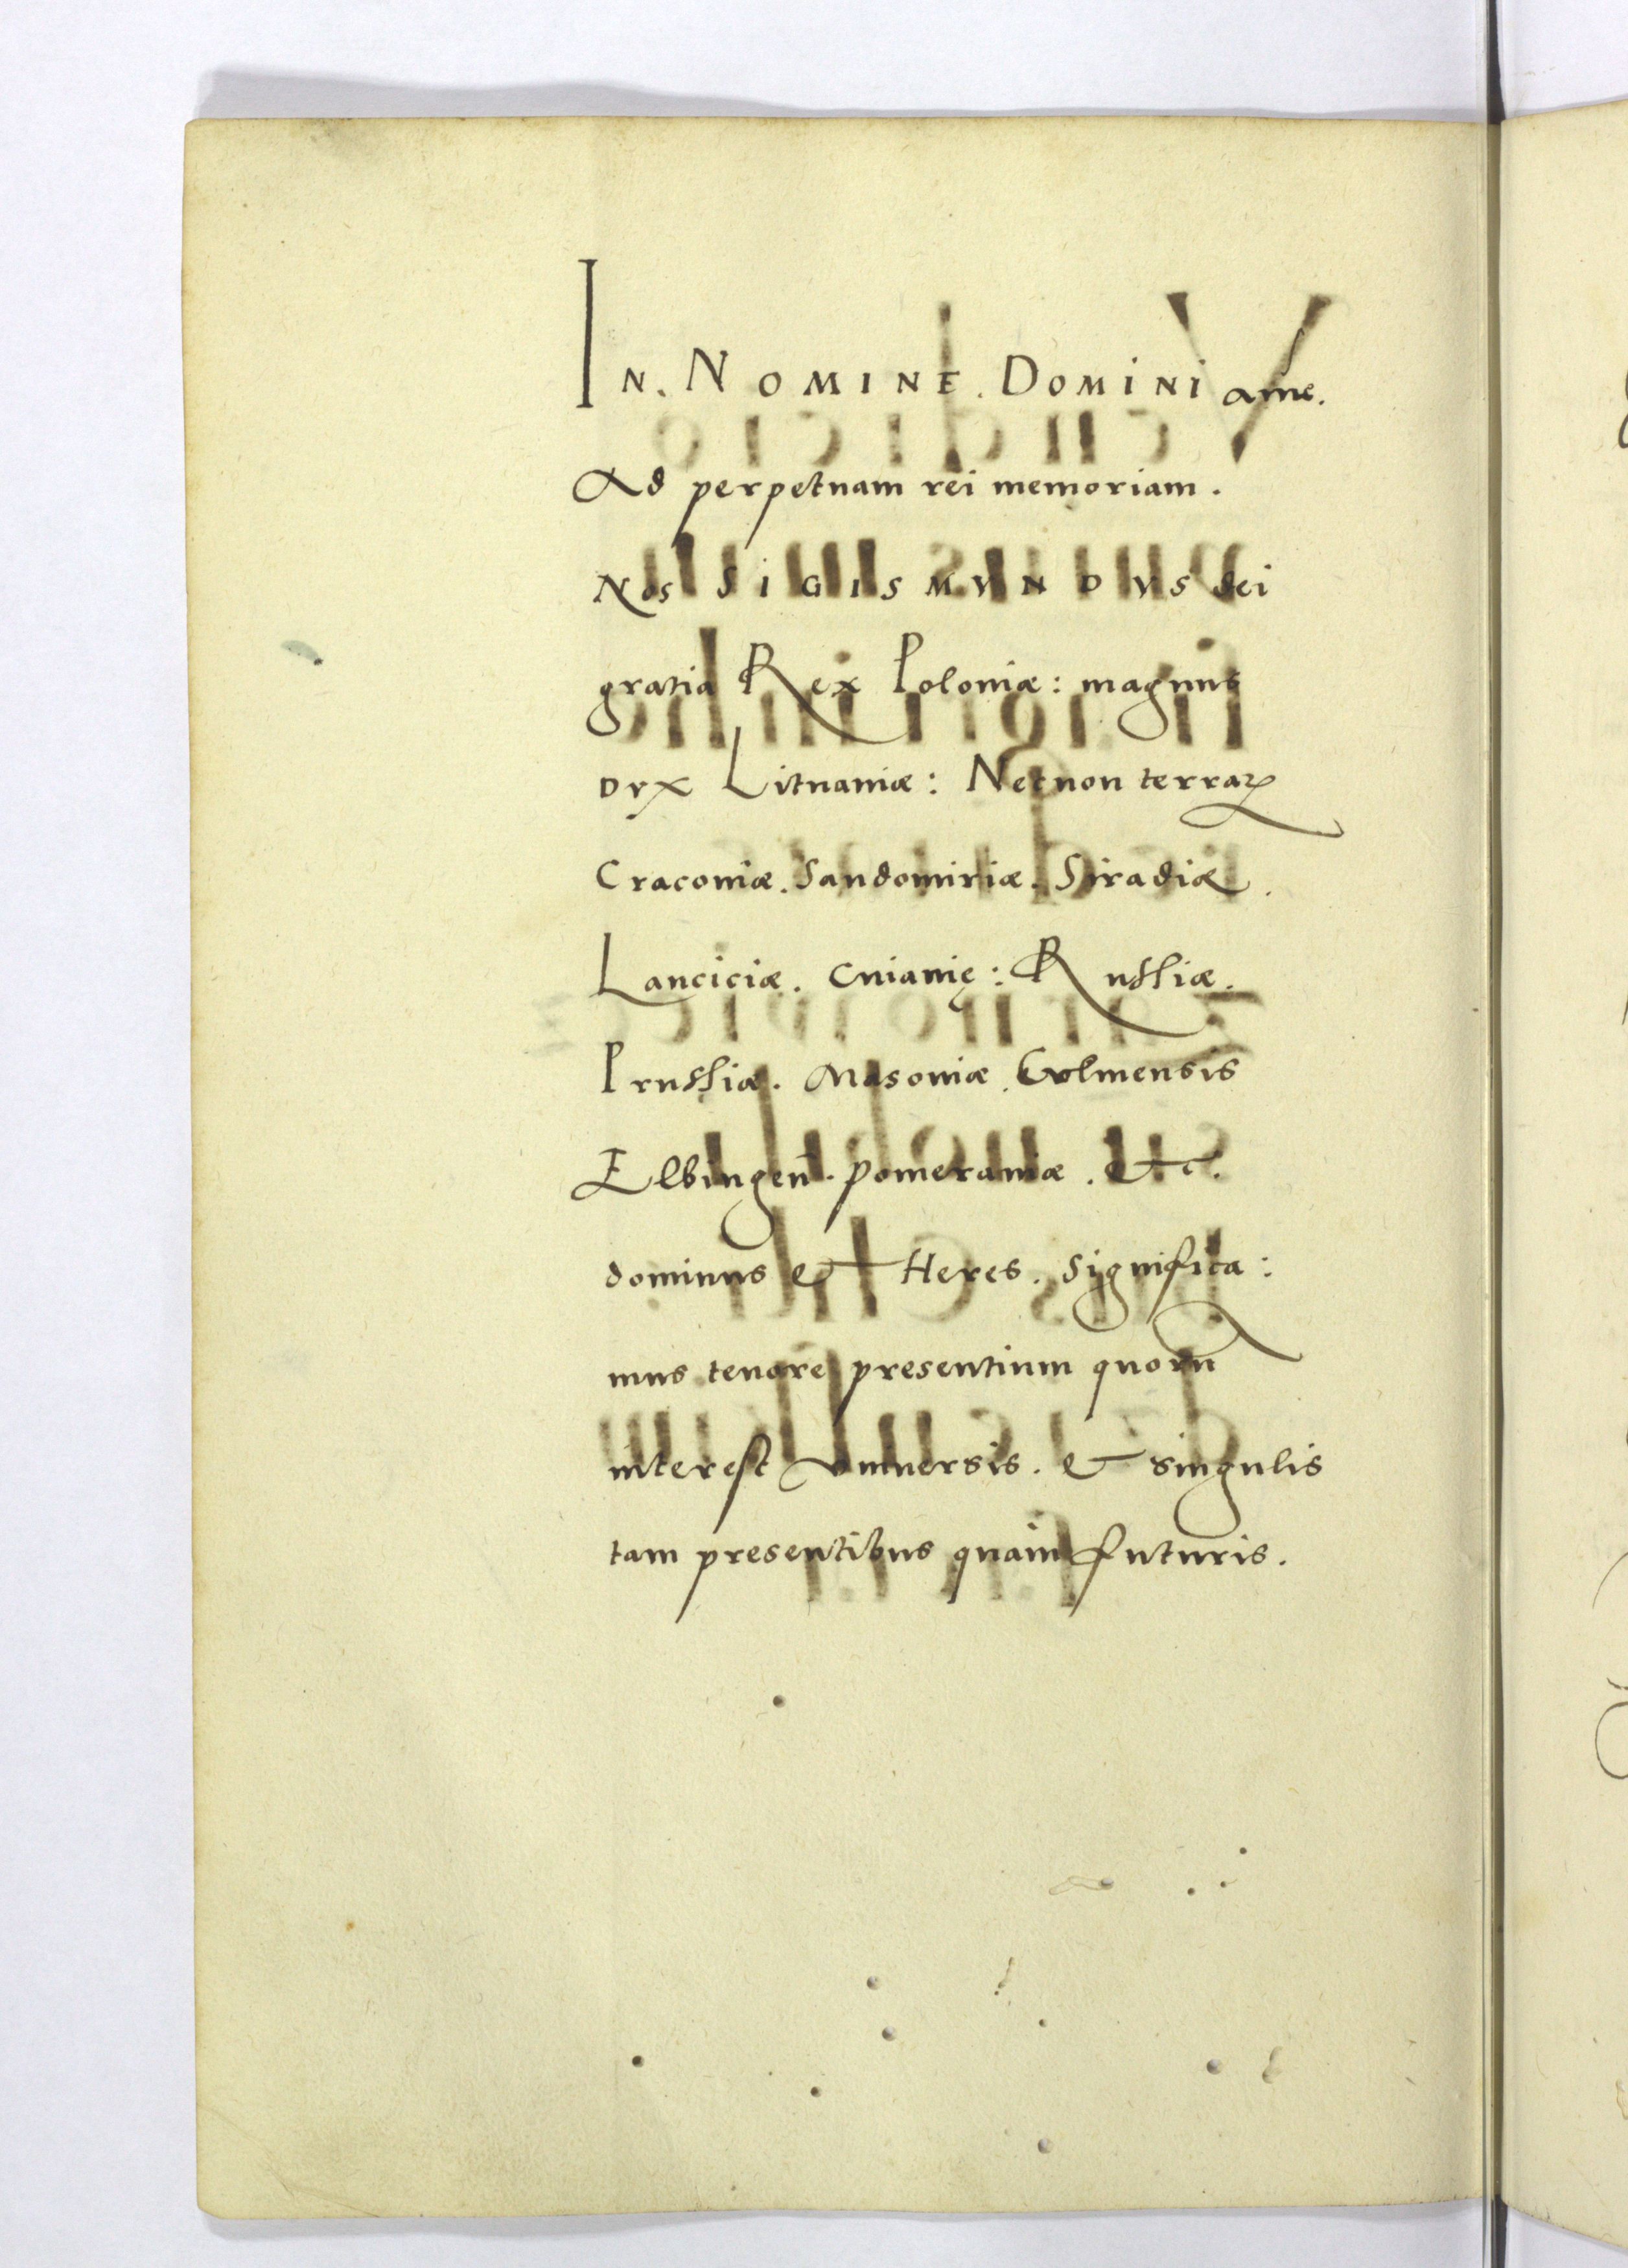 In. Nomine. Domini ame.
Ad perpetuam rei memoriam.
Nos SIGISMVNDVS dei
gratia Rex Poloniæ: magnus
DVX Lituaniæ: Necnon terraꝝ
Cracouiæ. Sandomiriæ. Siradiæ.
Lanciciæ. Cuiauię: Russiæ.
Prussiæ. Masouiæ. Culmensis
Elbingen̄. Pomeraniæ. etc.
dominus et Heres. Significa:
mus tenore presentium quorū
interest vniuersis. et singulis
tam presentibus quam futuris.